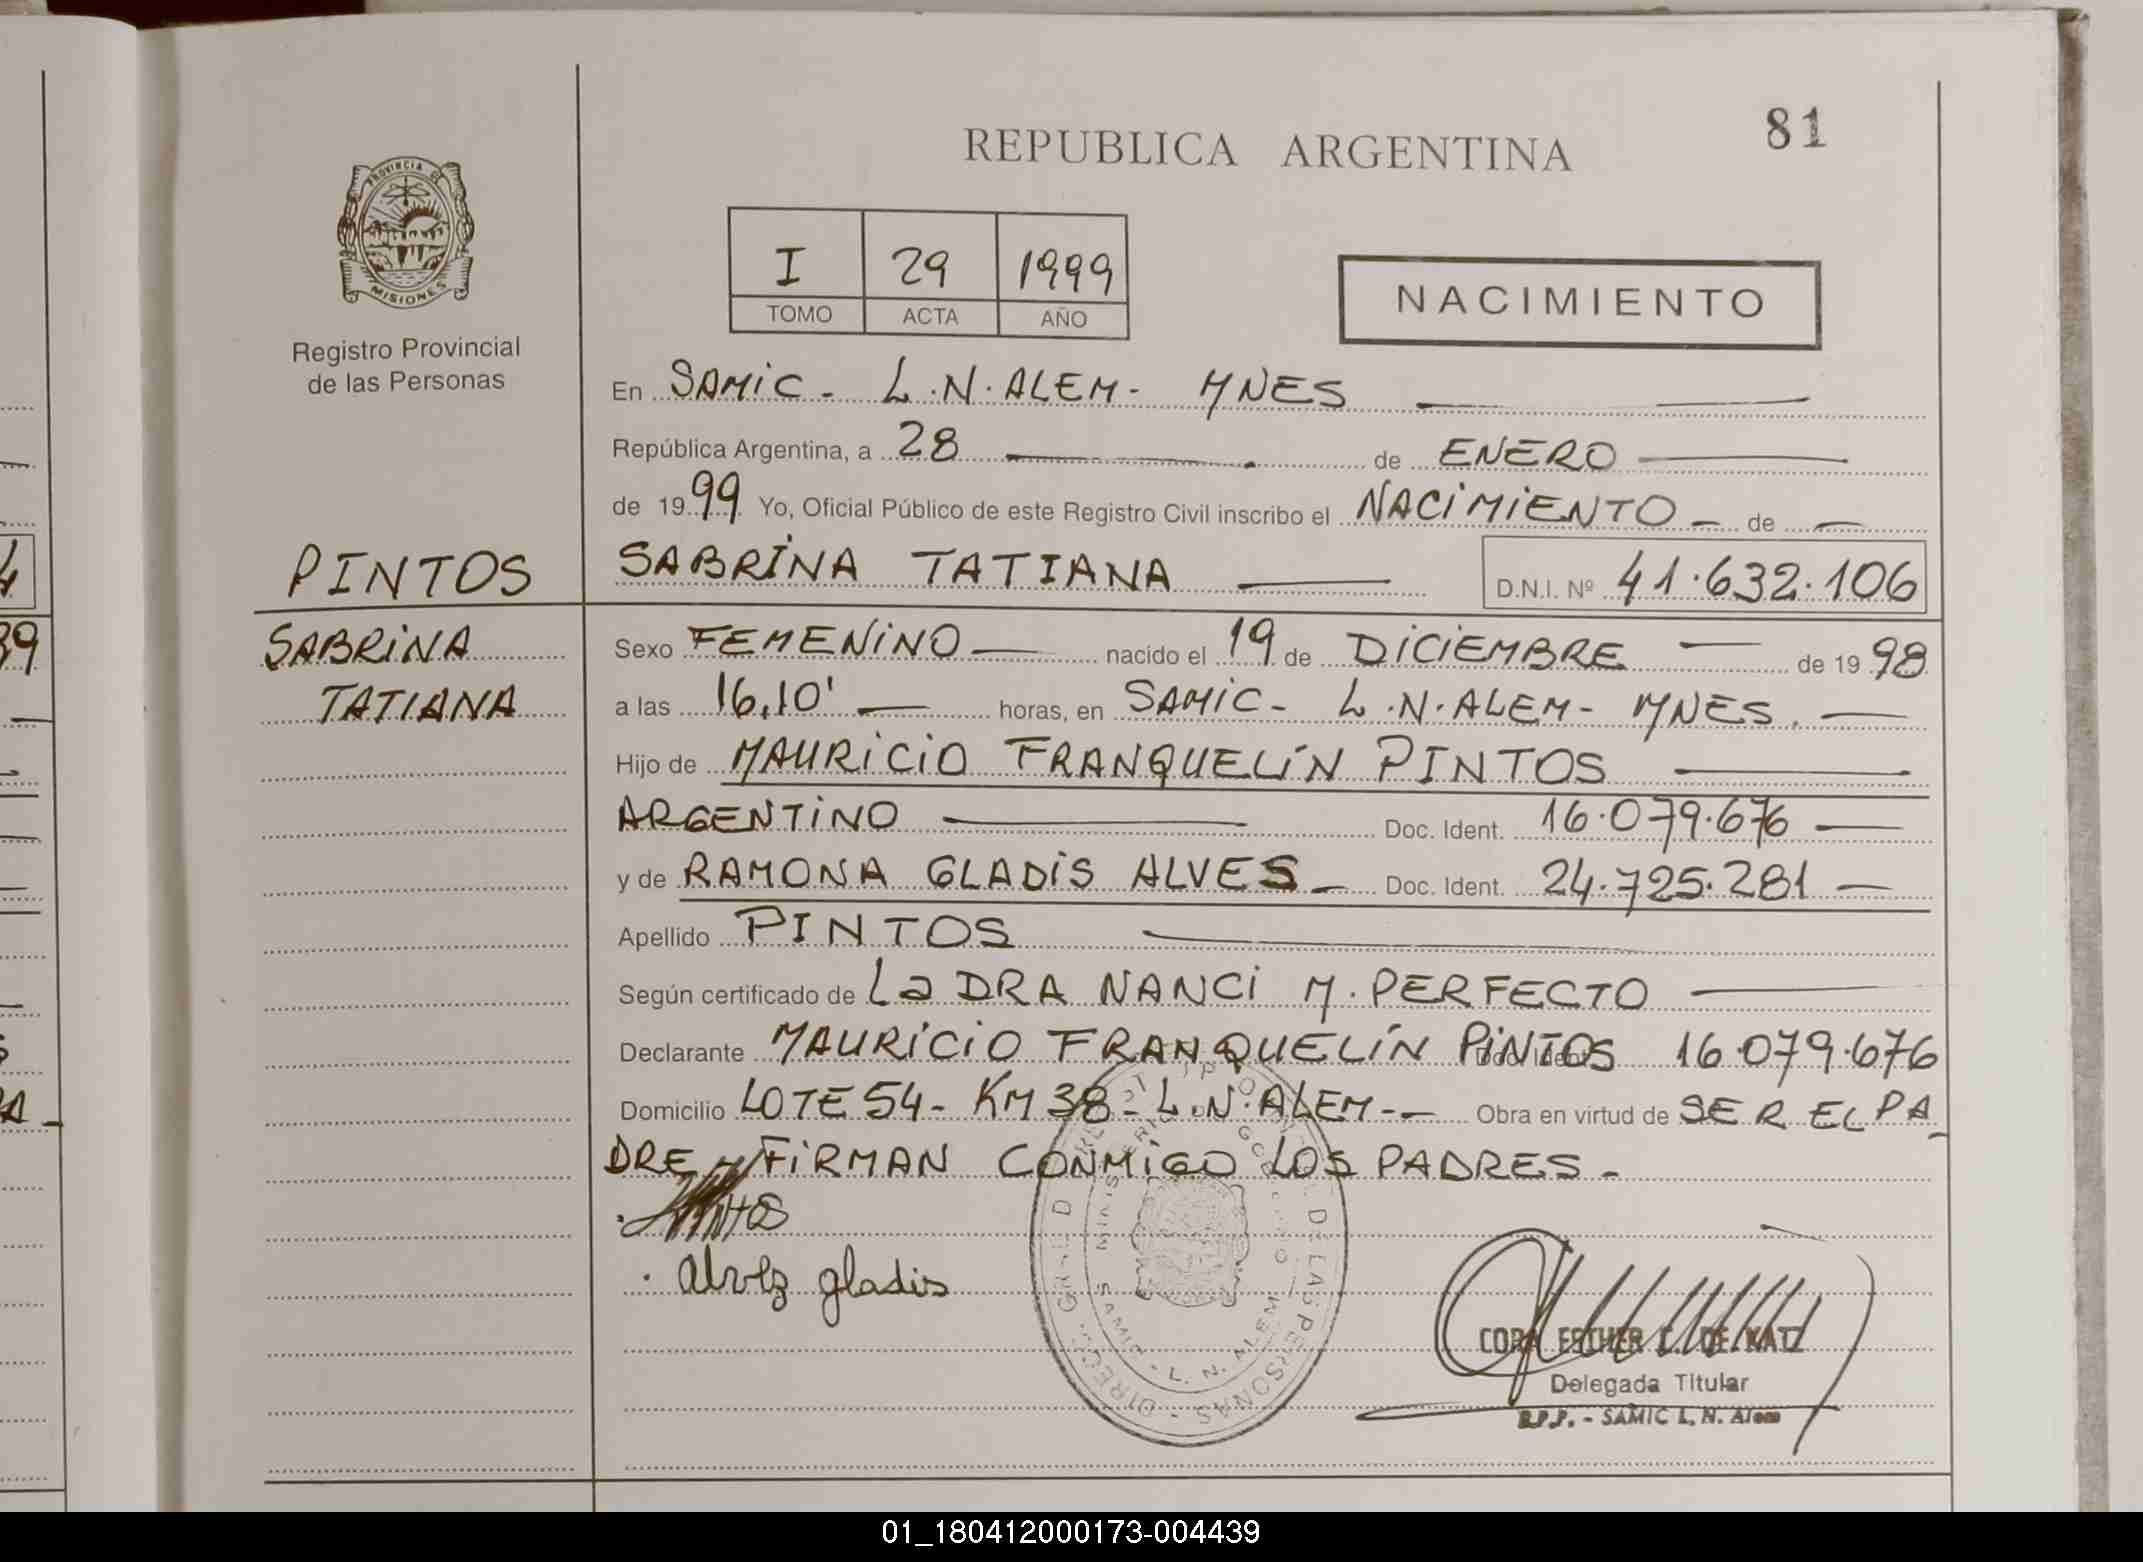 REPUBLICA ARGENTINA
81
PROVINCIA DE
MISIONES
Registro Provincial
de las Personas
I 29 1999
TOMO ACTA AÑO
NACIMIENTO
En SAMIC - L.N. ALEM - MNES
República Argentina, a 28 de ENERO
de 1999 Yo, Oficial Público de este Registro Civil inscribo el NACIMIENTO - de -
PINTOS
SABRINA TATIANA D.N.I. Nº 41.632.106
SABRINA
TATIANA
Sexo FEMENINO nacido el 19 de DICIEMBRE de 1998
a las 16,10' horas, en SAMIC - L.N. ALEM - MNES.
Hijo de MAURICIO FRANQUELÍN PINTOS
ARGENTINO Doc. Ident. 16.079.676
y de RAMONA GLADIS ALVES - Doc. Ident. 24.725.281
Apellido PINTOS
Según certificado de La DRA NANCI M. PERFECTO
Declarante MAURICIO FRANQUELÍN PINTOS Doc. Ident. 16.079.676
Domicilio LOTE 54 - KM 38 - L.N. ALEM - Obra en virtud de SER EL PA_
DRE FIRMAN CONMIGO LOS PADRES -
Alvez gladis
DE LAS PERSONAS
SAMIC - L. N. ALEM
CORA ESTHER C. DE KATZ
Delegada Titular
R.P.P. - SAMIC L. N. Alem
39
A -
01_180412000173-004439